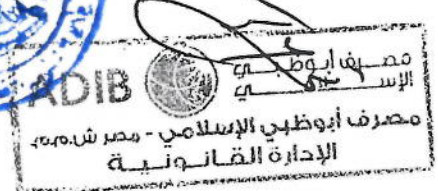 ADIB
مصرف أبوظبي
الإسلامي
مصرف أبوظبي الإسلامي - مصر ش.م.م.
الإدارة القانونية